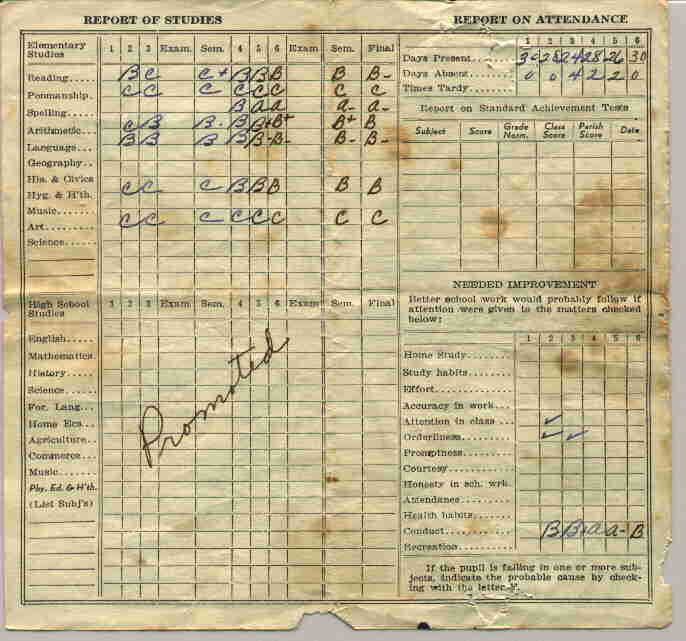 REPORT OF STUDIES
Elementary Studies 1 2 3 Exam. Sem. 4 5 6 Exam Sem. Final
Reading....... B C C+ B B B B B-
Penmanship. C C C C C C C C
Spelling....... B a a a- a-
Arithmetic... C B B- B B+ B+ B+ B
Language.... B B B B B- B- B- B-
Geography..
His. & Civics
Hyg. & H'th. C C C B B B B B
Music.......
Art........... C C C C C C C C
Science......
High School Studies 1 2 3 Exam. Sem. 4 5 6 Exam Sem. Final
English.....
Mathematics.
History.....
Science.....
For. Lang...
Home Eco...
Agriculture..
Commerce...
Music.......
Phy. Ed. & H'th.
(List Subj's)
Promoted
REPORT ON ATTENDANCE
1 2 3 4 5 6
Days Present...... 30 28 24 28 26 30
Days Absent...... 0 0 4 2 2 0
Times Tardy......
Report on Standard Achievement Tests
Subject Score Grade Norm. Class Score Parish Score Date
NEEDED IMPROVEMENT
Better school work would probably follow if
attention were given to the matters checked
below:
1 2 3 4 5 6
Home Study.......
Study habits.......
Effort.............
Accuracy in work...
Attention in class ... ✓
Orderliness........ ✓ ✓
Promptness.......
Courtesy..........
Honesty in sch. wrk.
Attendance........
Health habits......
Conduct........... B B+ a a- B
Recreation.........
If the pupil is failing in one or more sub-
jects, indicate the probable cause by check-
ing with the letter